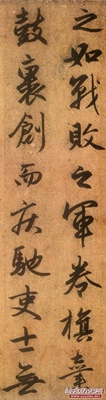 之如戰敗之軍卷旗棄
鼓裹創而疾馳吏士無